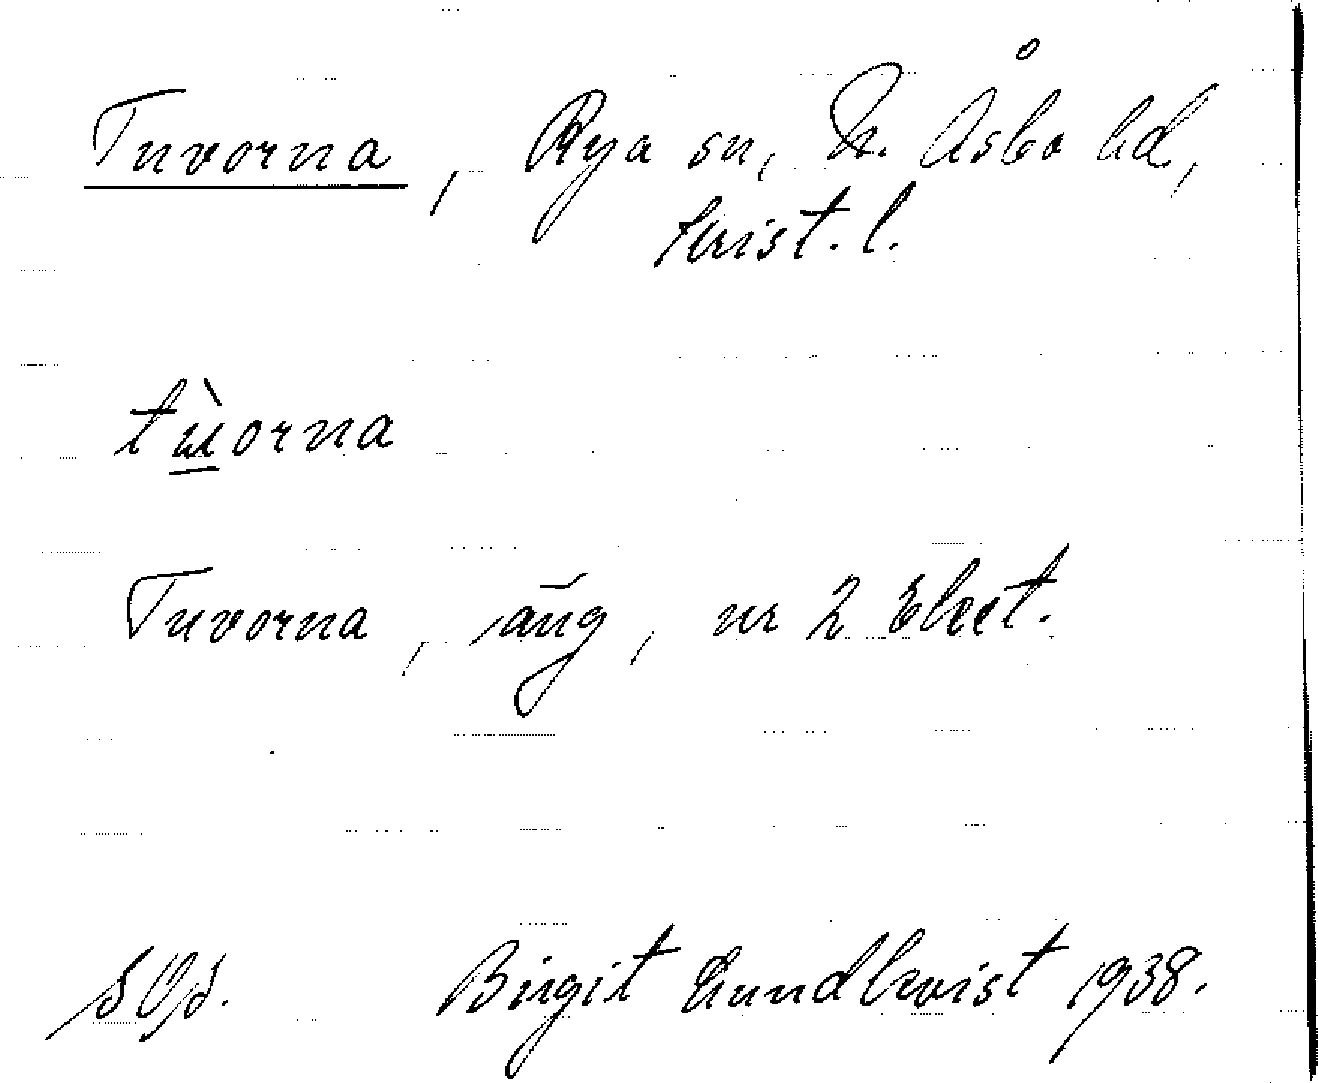 Tuvorna, Rya sn, N. Åsbo hd,
Krist. l.
tùorna
Tuvorna, äng, nr 2 Elset.
Birgit Lundkvist 1938.